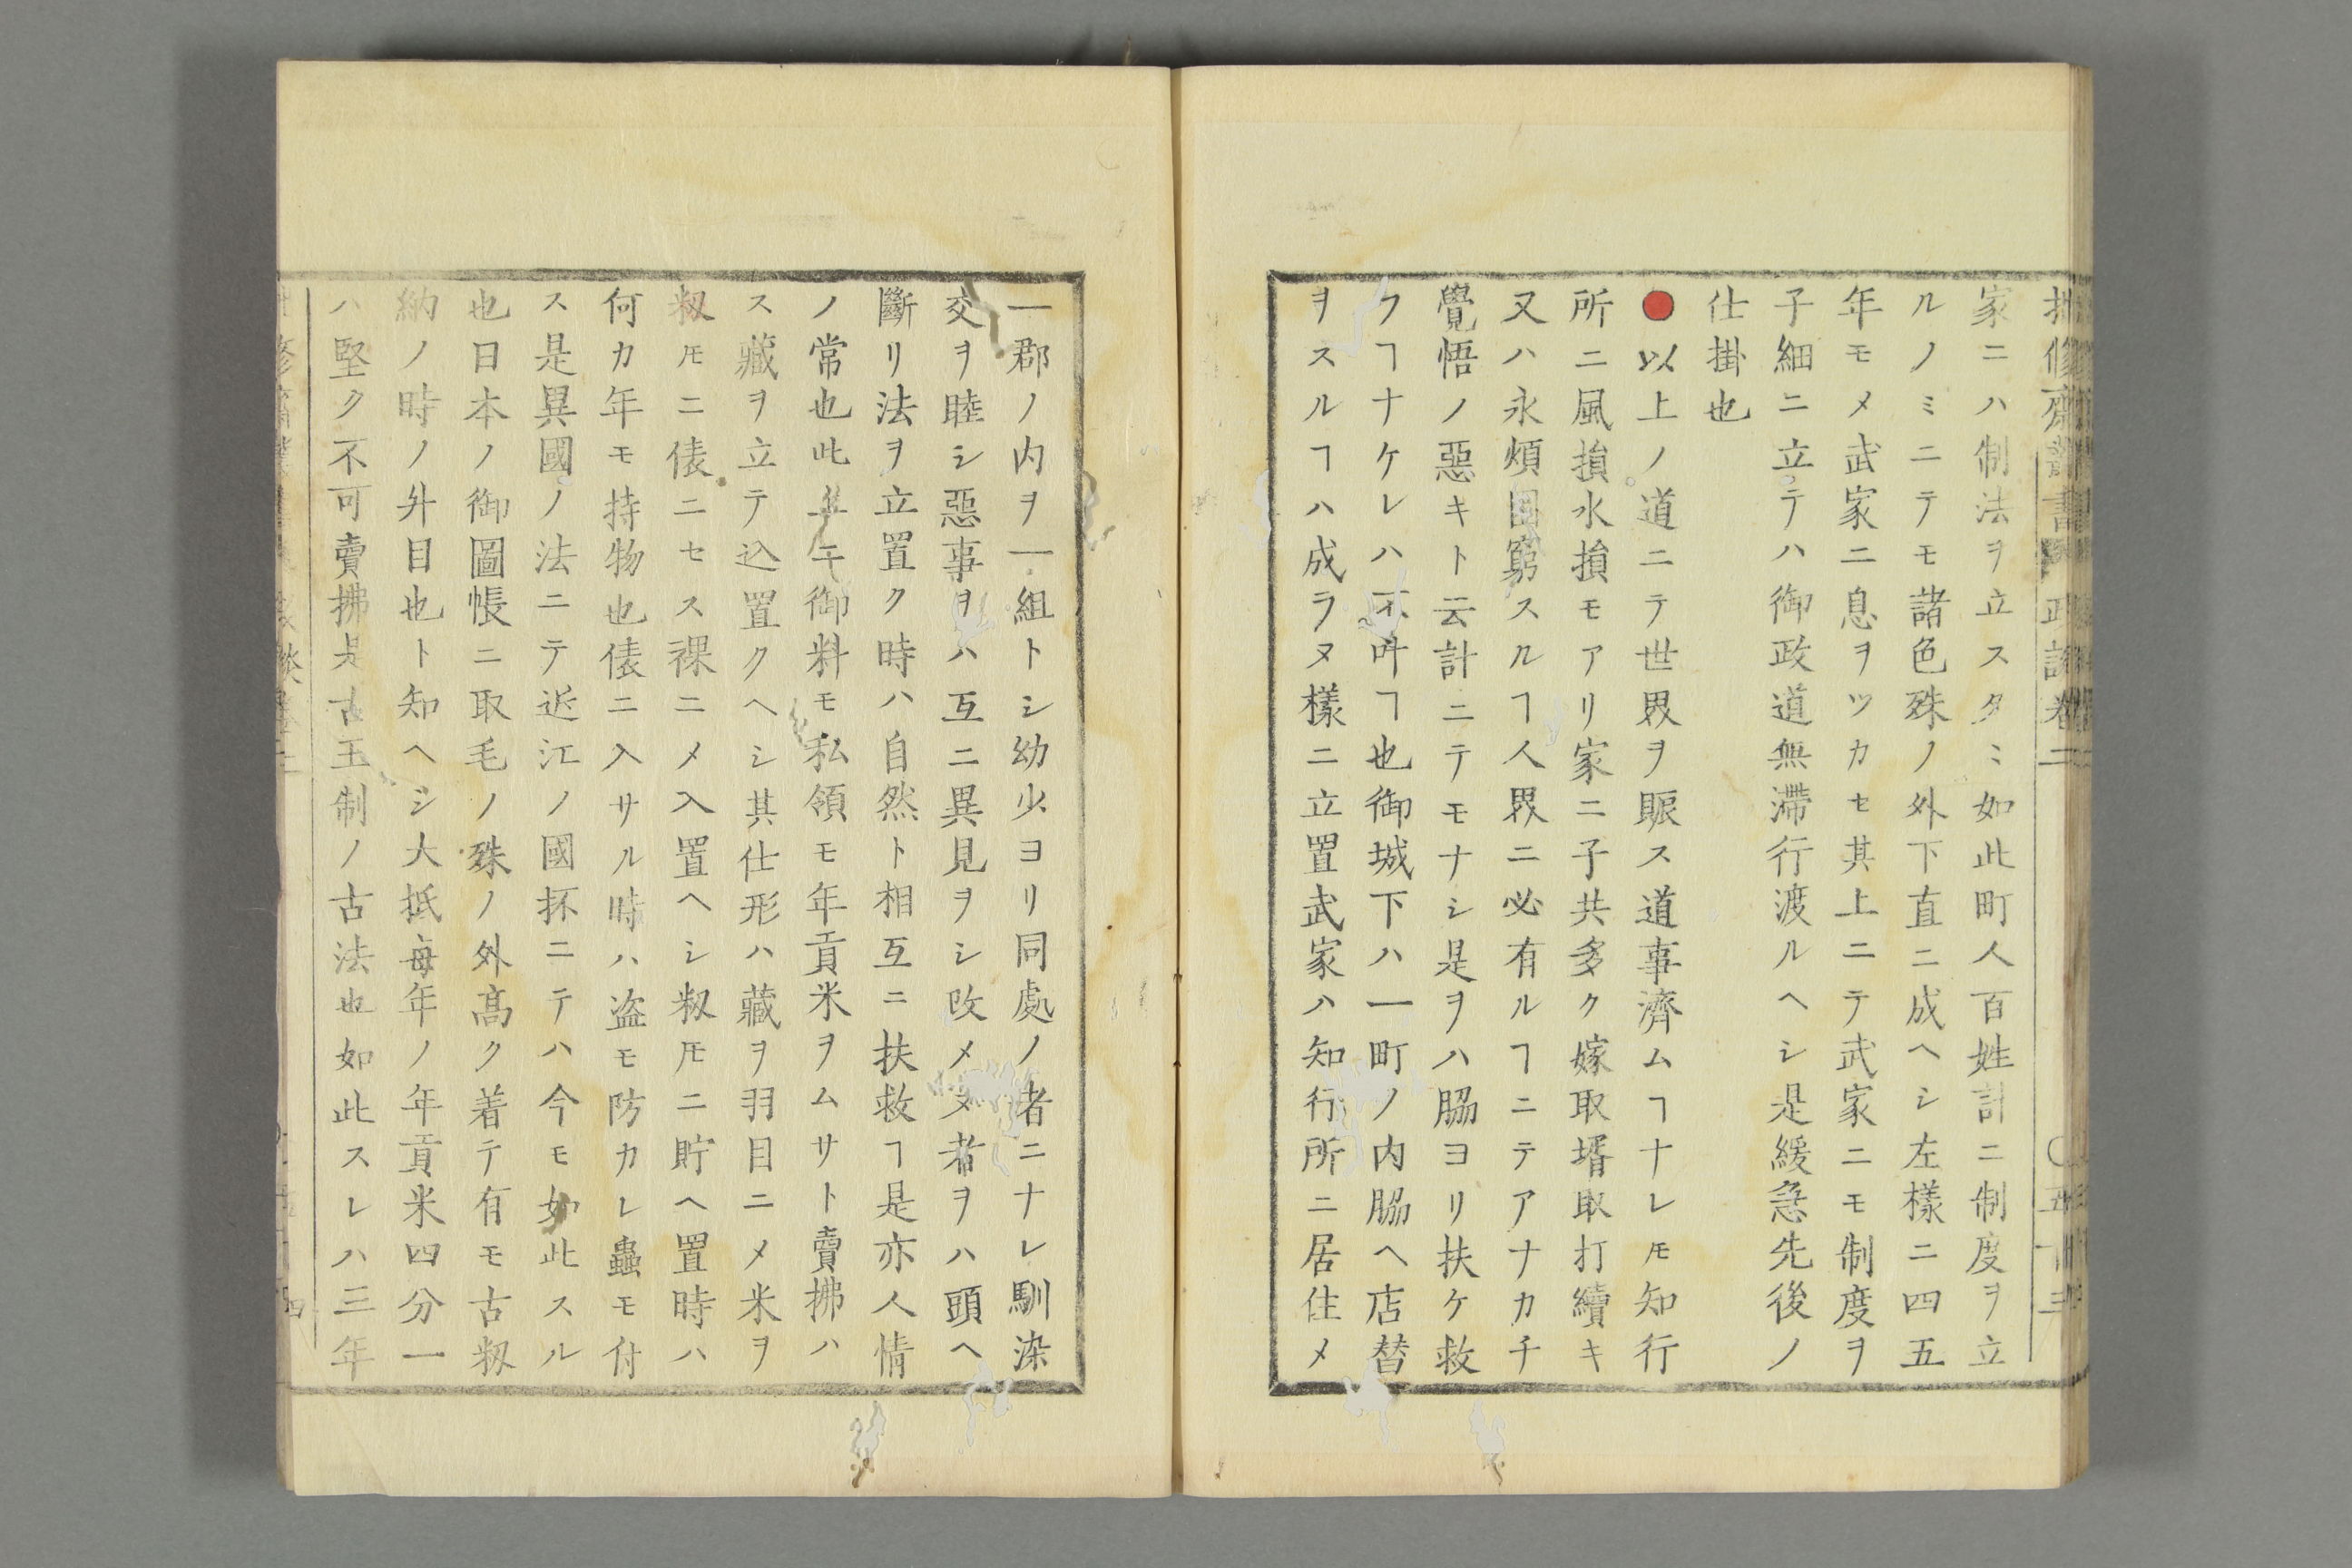 家ニハ制法ヲ立スタミ如此町人百姓計ニ制度ヲ立
ルノミニテモ諸色殊ノ外下直ニ成ヘシ左樣ニ四五
年モメ武家ニ息ヲツカセ其上ニテ武家ニモ制度ヲ
子細ニ立テハ御政道無滯行渡ルヘシ是緩急先後ノ
仕掛也
●以上ノ道ニテ世界ヲ賑ス道事濟ムヿナレ𪜈知行
所ニ風損水損モアリ家ニ子共多ク嫁取壻取打續キ
又ハ永煩困窮スルヿ人界ニ必有ルヿニテアナカチ
覺悟ノ惡キト云計ニテモナシ是ヲハ脇ヨリ扶ケ救
フヿナケレハ不叶ヿ也御城下ハ一町ノ内脇ヘ店替
ヲスルヿハ成ラヌ樣ニ立置武家ハ知行所ニ居住メ
一郡ノ内ヲ一組トシ幼少ヨリ同處ノ者ニナレ馴染
交ヲ睦シ惡事ヲハ互ニ異見ヲシ改メヌ者ヲハ頭ヘ
斷リ法ヲ立置ク時ハ自然ト相互ニ扶救ヿ是亦人情
ノ常也此上ニ御料モ私領モ年貢米ヲムサト賣拂ハ
ス藏ヲ立テ込置クヘシ其仕形ハ藏ヲ羽目ニメ米ヲ
籾𪜈ニ俵ニセス裸ニメ入置ヘシ籾𪜈ニ貯ヘ置時ハ
何カ年モ持物也俵ニ入サル時ハ盗モ防カレ蟲モ付
ス是異國ノ法ニテ近江ノ國抔ニテハ今モ如此スル
也日本ノ御圖帳ニ取毛ノ殊ノ外高ク着テ有モ古籾
納ノ時ノ升目也ト知ヘシ大抵毎年ノ年貢米四分一
ハ堅ク不可賣拂是古王制ノ古法也如此スレハ三年